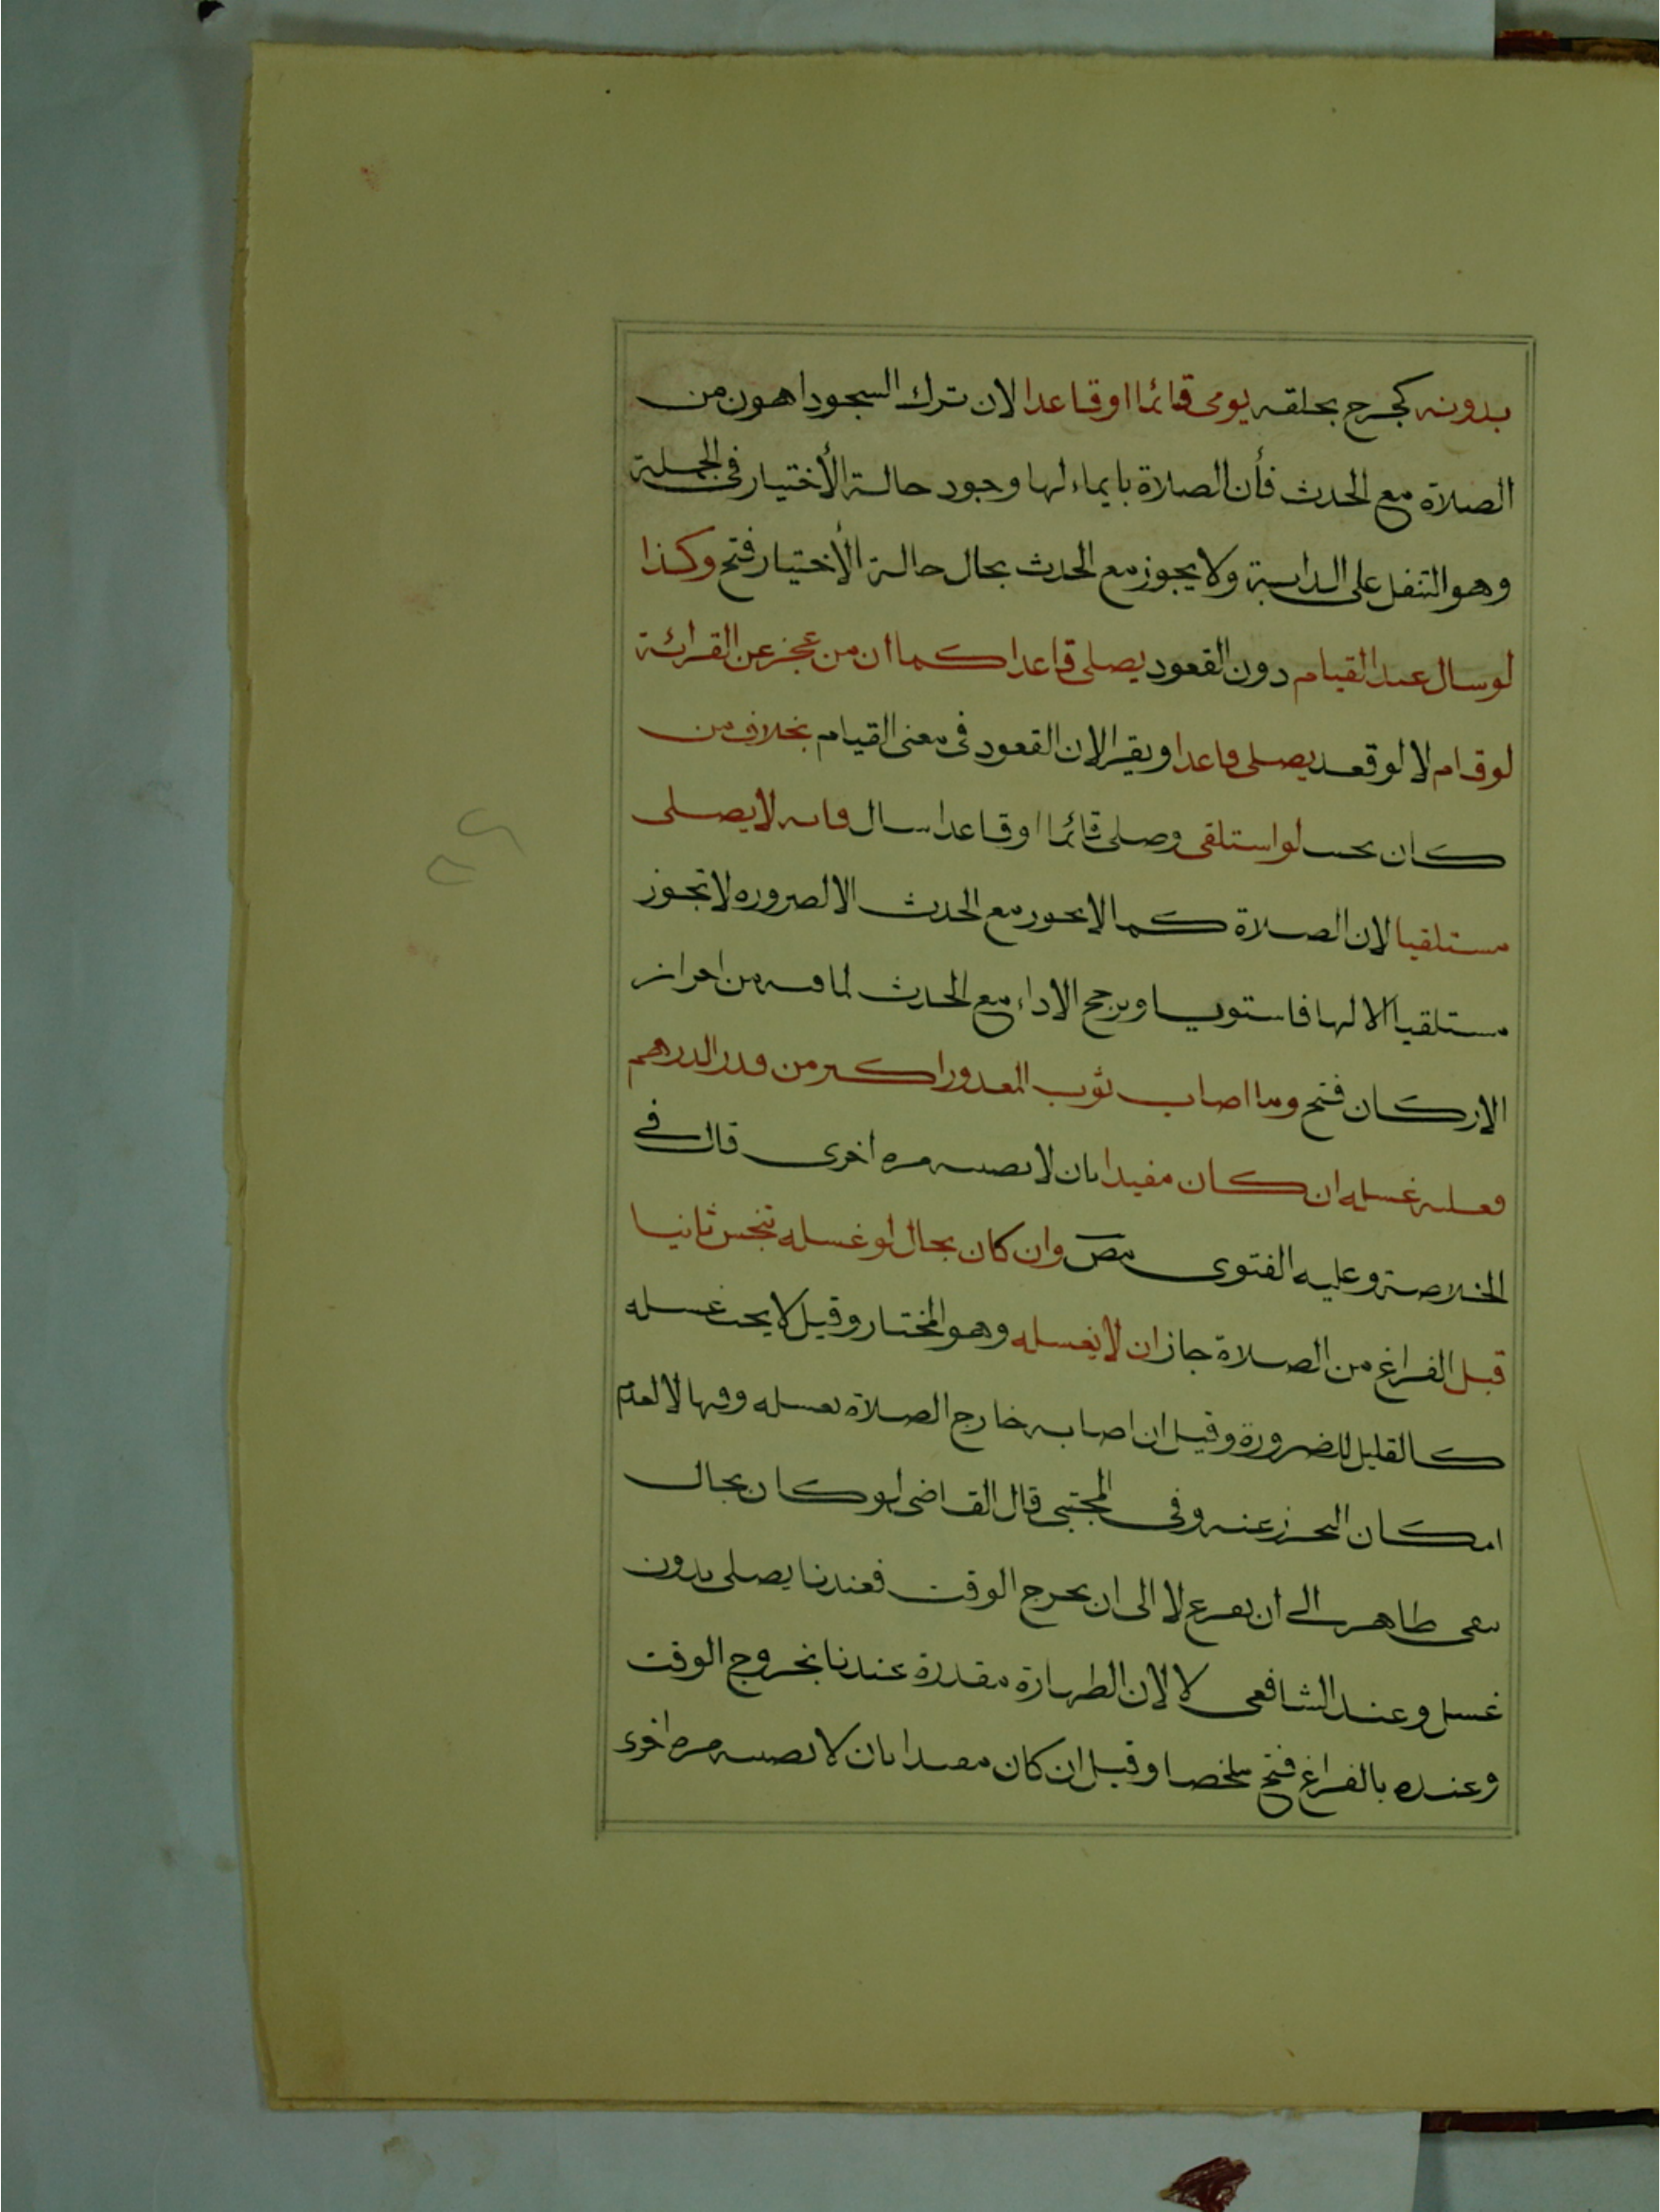 بدونه كجرح بحلقه يومى قائما او قاعدا لان ترك السجود اهون من
الصلاة مع الحدث فأن الصلاة بايماء لها وجود حالة الأختيار فى الجملة
وهو التنفل على الدابة ولا يجوز مع الحدث بحال حالة الأختيار فتح وكذا
لو سال عند القيام دون القعود يصلى قاعدا كما ان من عجز عن القرائة
لو قام لا لو قعد يصلى قاعدا ويقرا لان القعود فى معنى القيام بخلاف من
كان بحيث لو استلقى وصلى قائما او قاعدا سال فانه لا يصلى
مستلقيا لان الصلاة كما لا يجوز مع الحدث الا لضروره لا تجوز
مستلقيا الا لها فاستويا وبرجح الاداء مع الحدث لما فيه من احراز
الاركان فتح وما اصاب ثوب المعذور اكثر من قدر الدرهم
فعليه غسله ان كان مفيدا بان لا يصيبه مره اخرى قال فى
الخلاصة وعليه الفتوى مص وان كان بحال لو غسله تنجس ثانيا
قبل الفراغ من الصلاة جاز ان لا يغسله وهو المختار وقيل لا يجب غسله
كالقليل للضرورة وقيل ان اصابه خارج الصلاة يغسله وفيها لا لعدم
امكان التحرز عنه وفى المجتبى قال القاضى لو كان بحال
يبقى طاهر الى ان يفرغ لا الى ان يخرج الوقت فعندنا يصلى بدون
غسل وعند الشافعى لا لان الطهارة مقدرة عندنا بخروج الوقت
وعنده بالفراغ فتح ملخصا وقيل ان كان مفيدا بان لا يصيبه مره اخرى